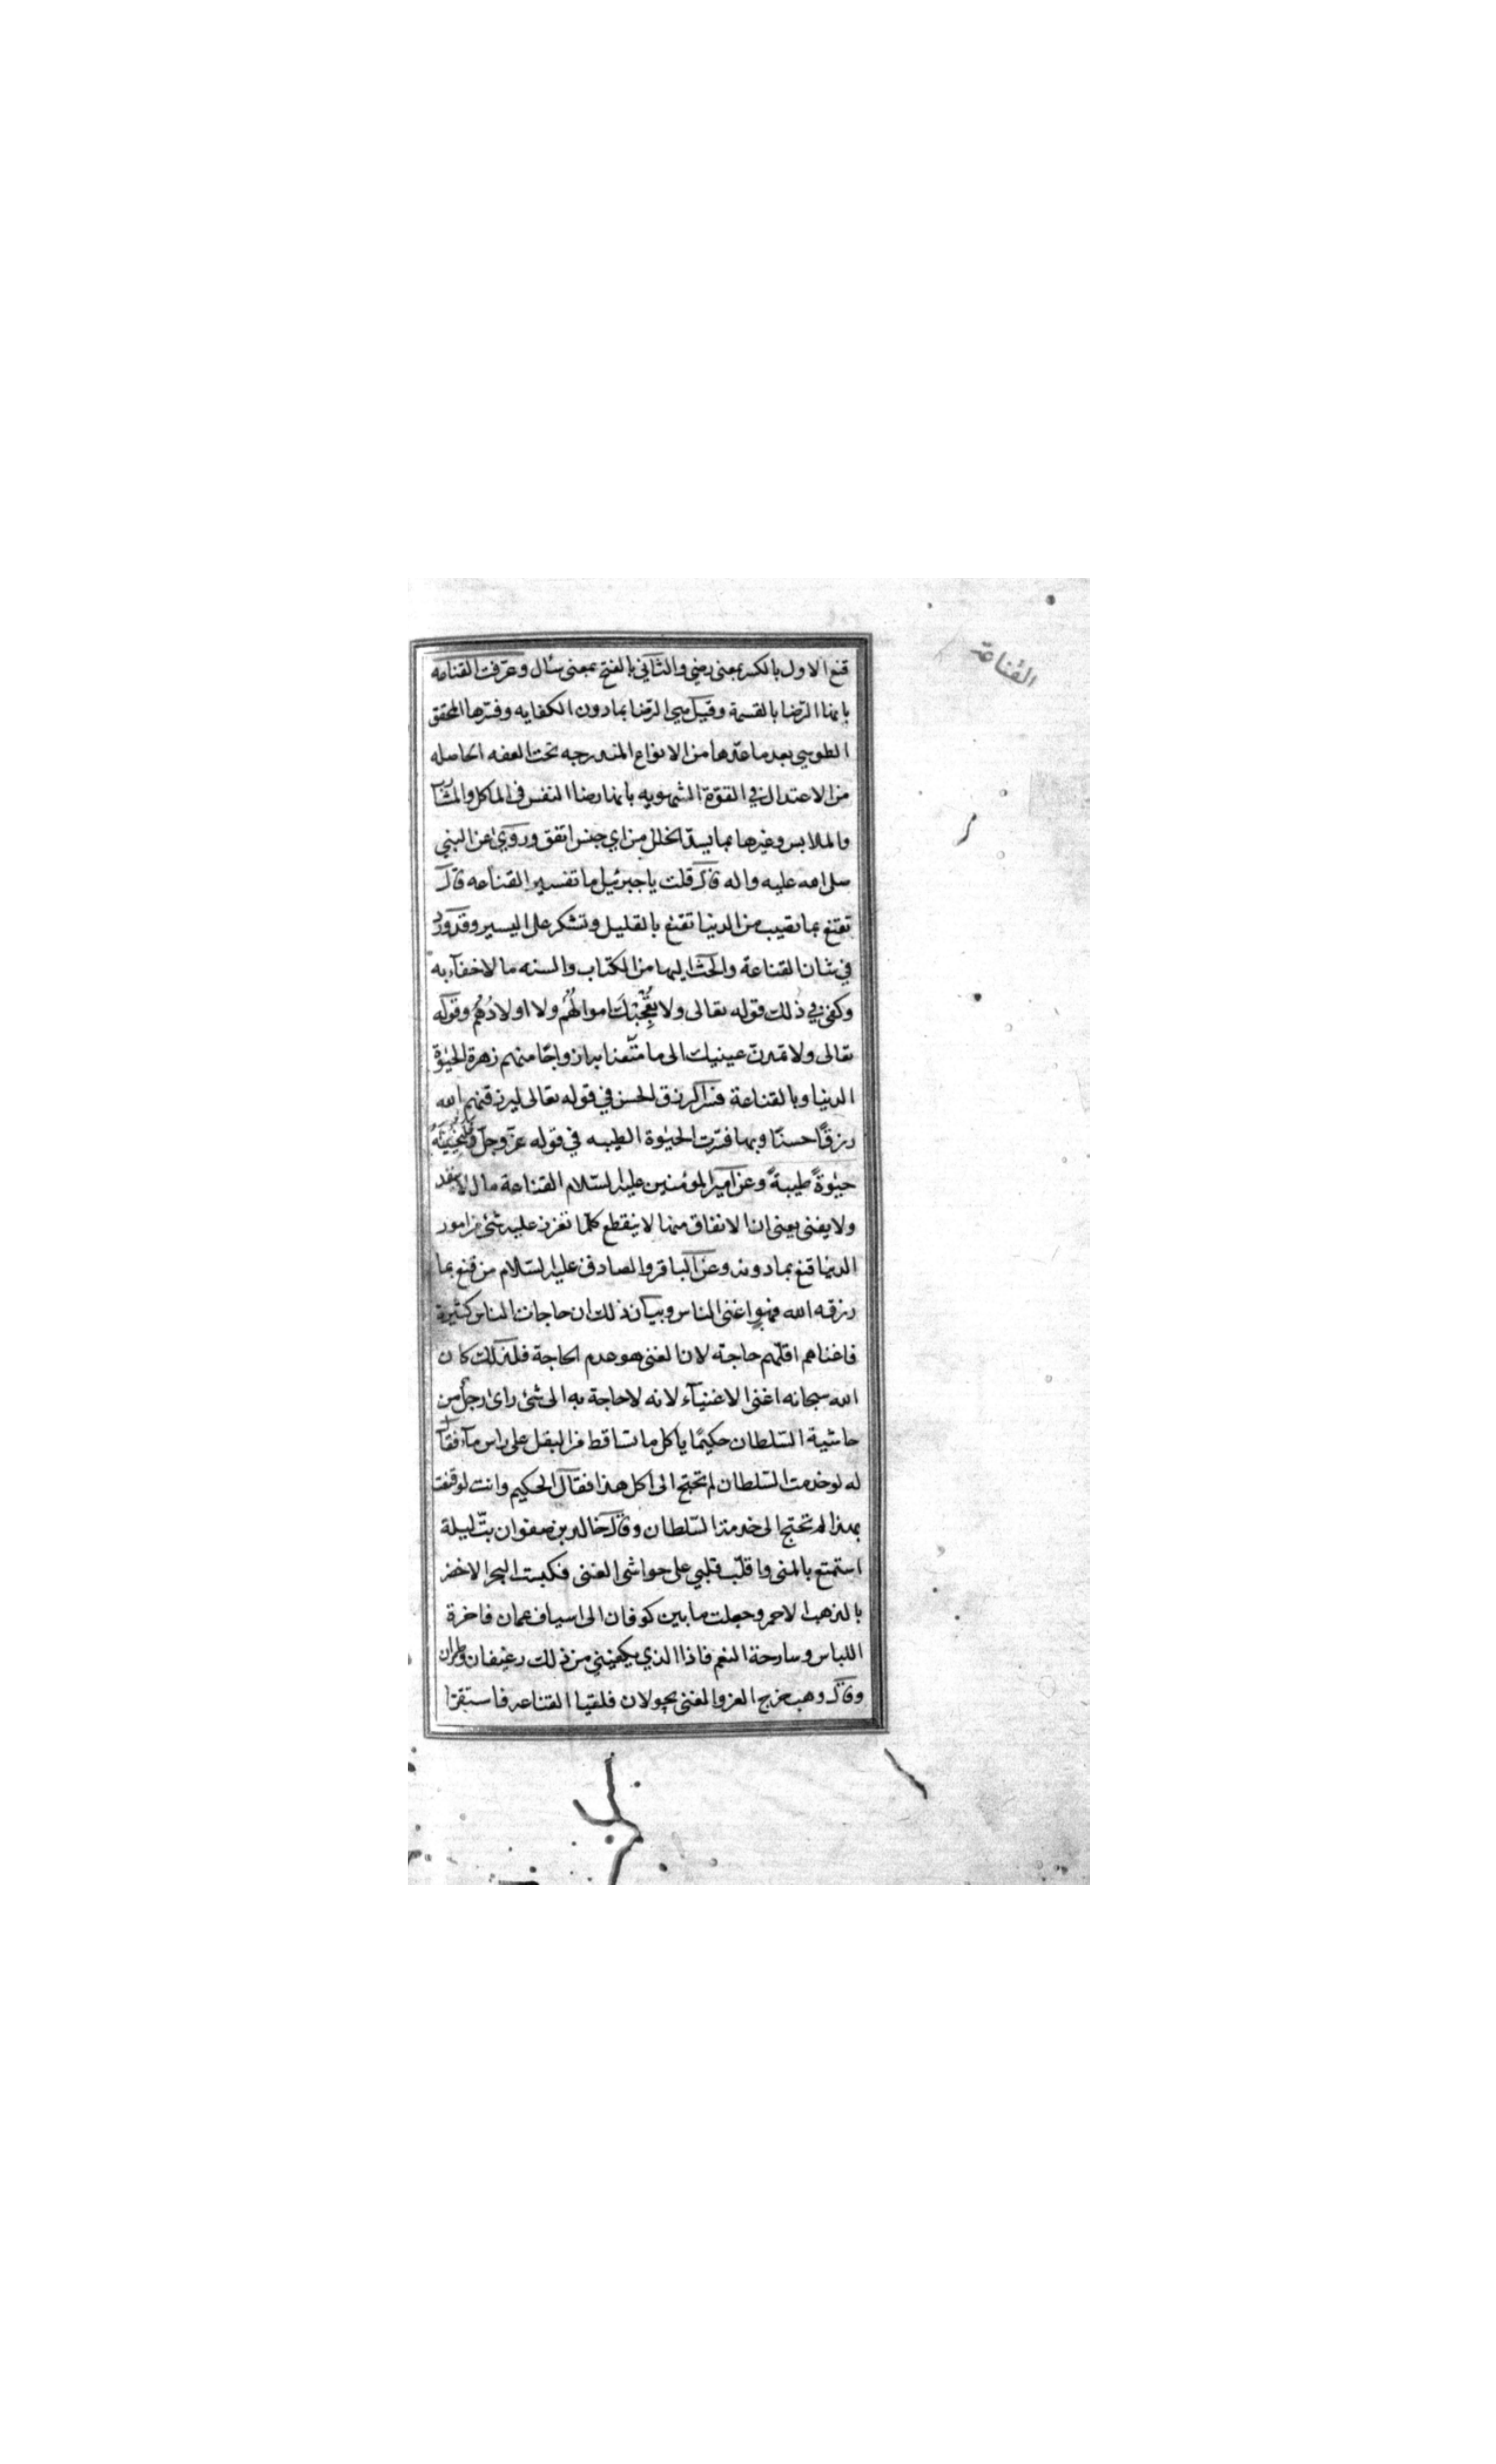 القناعة
قنع الاول بالكسر بمعنى رضي والثاني بالفتح بمعنى سأل وعرفت القناعه
بانها الرضا بالقسمة وقيل هي الرضا بمادون الكفايه وفسرها المحقق
الطوسي بعد ما عدها من الانواع المندرجه تحت العفه الحاصله
من الاعتدال في القوة الشهويه بانها رضا النفس في الماكل والمشارب
والملابس وغيرها بما يسد الخلل من اي جنس اتفق وروي عن النبي
صلى الله عليه واله قال قلت يا جبرئيل ما تفسير القناعه قال
تقنع بما تصيب من الدنيا تقنع بالقليل وتشكر على اليسير وقد ورد
في شان القناعة والحث اليها من الكتاب والسنه ما لا خفآء به
وكفى في ذلك قوله تعالى ولا تُعْجِبْكَ اموالُهُم ولا اولادُهُم وقوله
تعالى ولا تمدن عينيك الى ما متّعنا به ازواجًا منهم زهرة الحيٰوة
الدنيا وبالقناعة فسر الرزق الحسن في قوله تعالى ليرزقنهم الله
رزقًا حسنًا وبها فسّرت الحيٰوة الطيبه في قوله عزّ وجلّ فَلَنُحْيِيَنَّهُ
حيٰوةً طيبةً وعن امير المؤمنين عليه السّلام القناعة مال لا ينفد
ولا يفنى يعنى ان الانفاق منها لا ينقطع كلّما تعزز عليه شئ من امور
الدنيا قنع بمادونه وعن الباقر والصادق عليه السّلام من قنع بما
رزقه الله فهو اغنى الناس وبيان ذلك ان حاجات الناس كثيرة
فاغناهم اقلّهم حاجة لان الغنى هو عدم الحاجة فلذلك كان
الله سبحانه اغنى الاغنيآء لانه لا حاجة به الى شئ راى رجل من
حاشية السّلطان حكيمًا ياكل ما تساقط من البقل على راس مآء فقال
له لو خدمت السّلطان لم تحتج الى اكل هذا فقال الحكيم وانت لو قنعت
بهذا لم تحتج الى خدمة السّلطان وقال خالد بن صفوان بتّ ليلة
استمتع بالمنى واقلّب قلبي على حواشى الغنى فكبست البحر الاخضر
بالذهب الاحمر وجعلت ما بين كوفان الى اسياف عمان فاخرة
اللباس وسارحة النعم فاذا الذي يكفيني من ذلك رغيفان وطمران
وقال وهب خرج العز والغنى يجولان فلقيا القناعه فاستقرّا